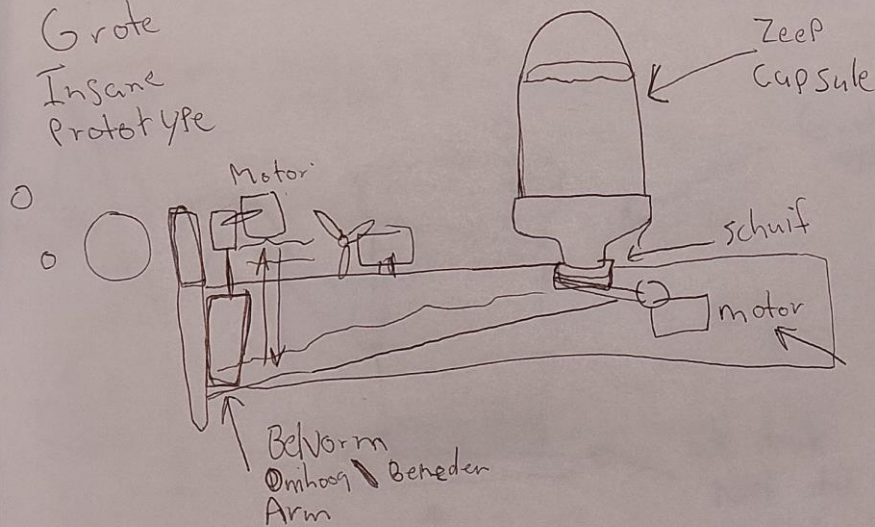 Grote
Insane
Prototype
Zeep
Capsule
Motor
schuif
motor
Belvorm
Omhoog \ Beneden
Arm